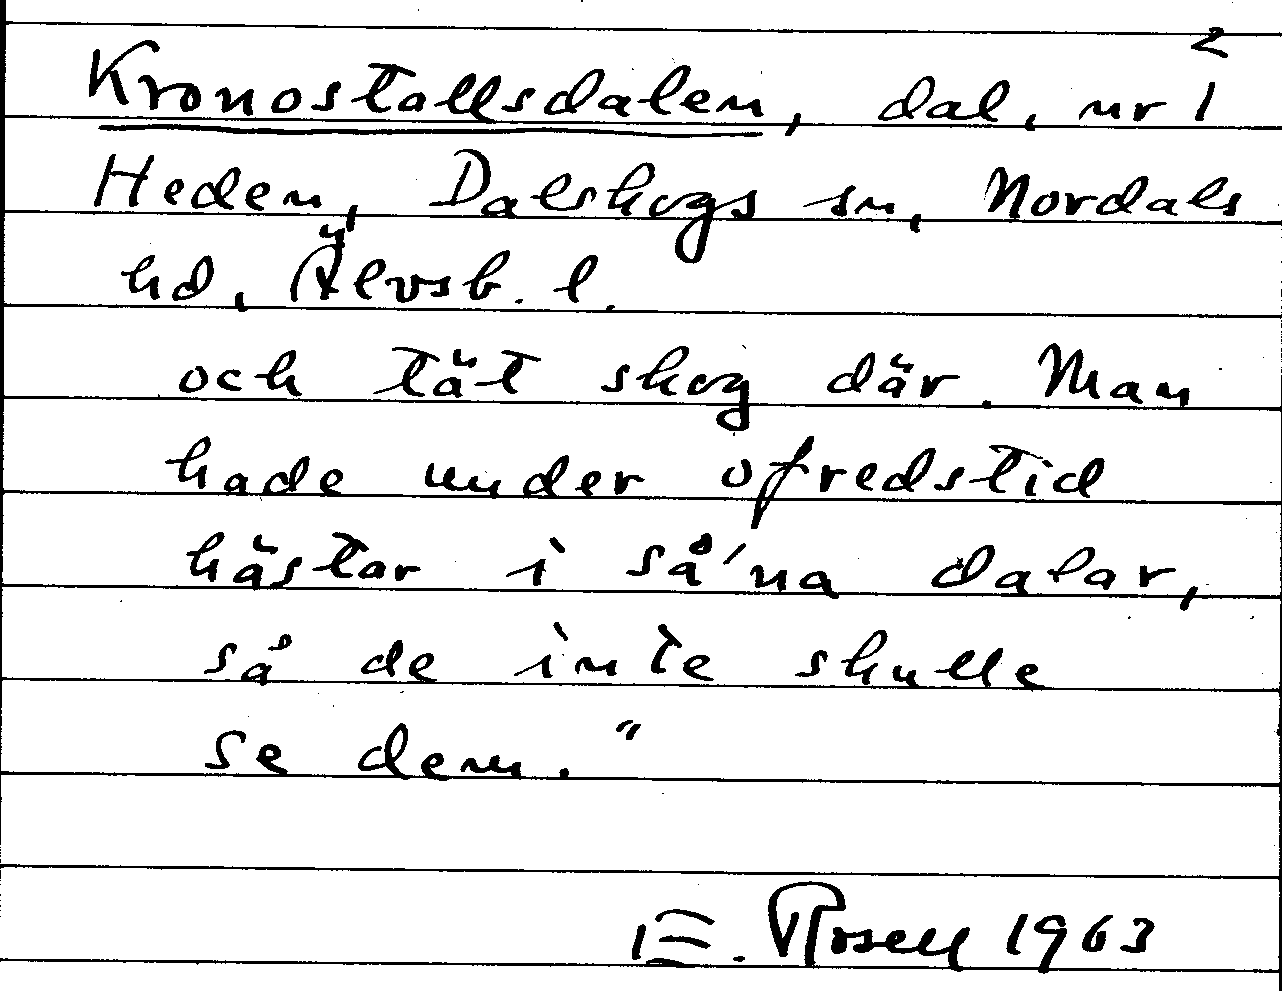 2
Kronostallsdalen, dal, nr 1
Heden, Dalskogs sn, Nordals
hd, Älvsb. l.
och tät skog där. Man
hade under ofredstid
hästar i så'na dalar,
så de inte skulle
se dem."
E. Rosell 1963